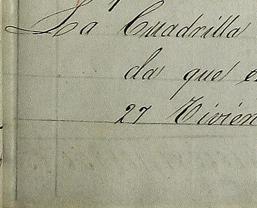 La Cuadrilla
da que e
27 Vivien